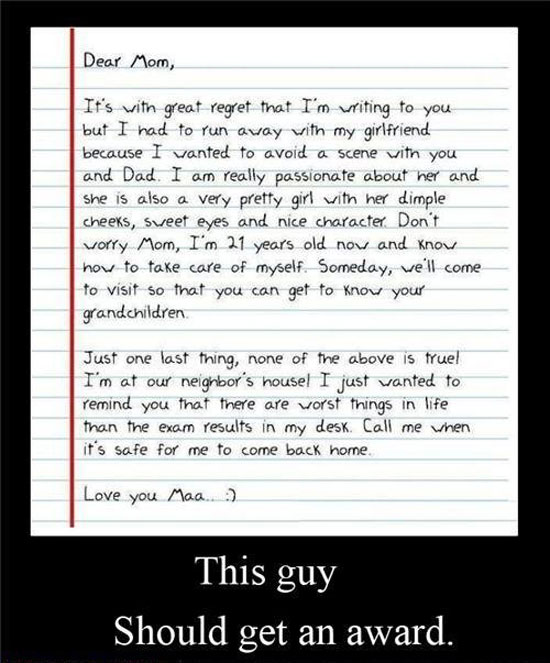 Dear Mom,
It's with great regret that I'm writing to you
but I had to run away with my girlfriend
because I wanted to avoid a scene with you
and Dad. I am really passionate about her and
she is also a very pretty girl with her dimple
cheeks, sweet eyes and nice character. Don't
worry Mom, I'm 21 years old now and know
how to take care of myself. Someday, we'll come
to visit so that you can get to know your
grandchildren.
Just one last thing, none of the above is true!
I'm at our neighbor's house! I just wanted to
remind you that there are worst things in life
than the exam results in my desk. Call me when
it's safe for me to come back home.
Love you Maa.. :)
This guy
Should get an award.